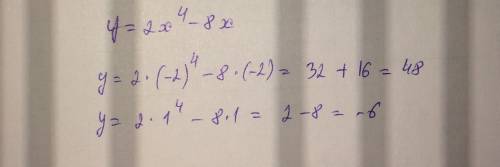 y = 2x⁴ - 8x
y = 2 · (-2)⁴ - 8 · (-2) = 32 + 16 = 48
y = 2 · 1⁴ - 8 · 1 = 2 - 8 = -6